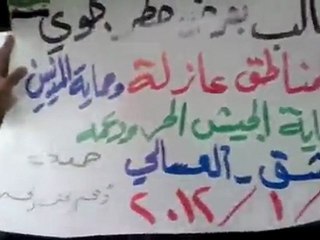 الب بفرض حظر جوي
مناطق عازلة وحماية المدنيين
اية الجيش الحر ودعمه
شق - العسالي جمعة
/ ١ / ٢٠١٢